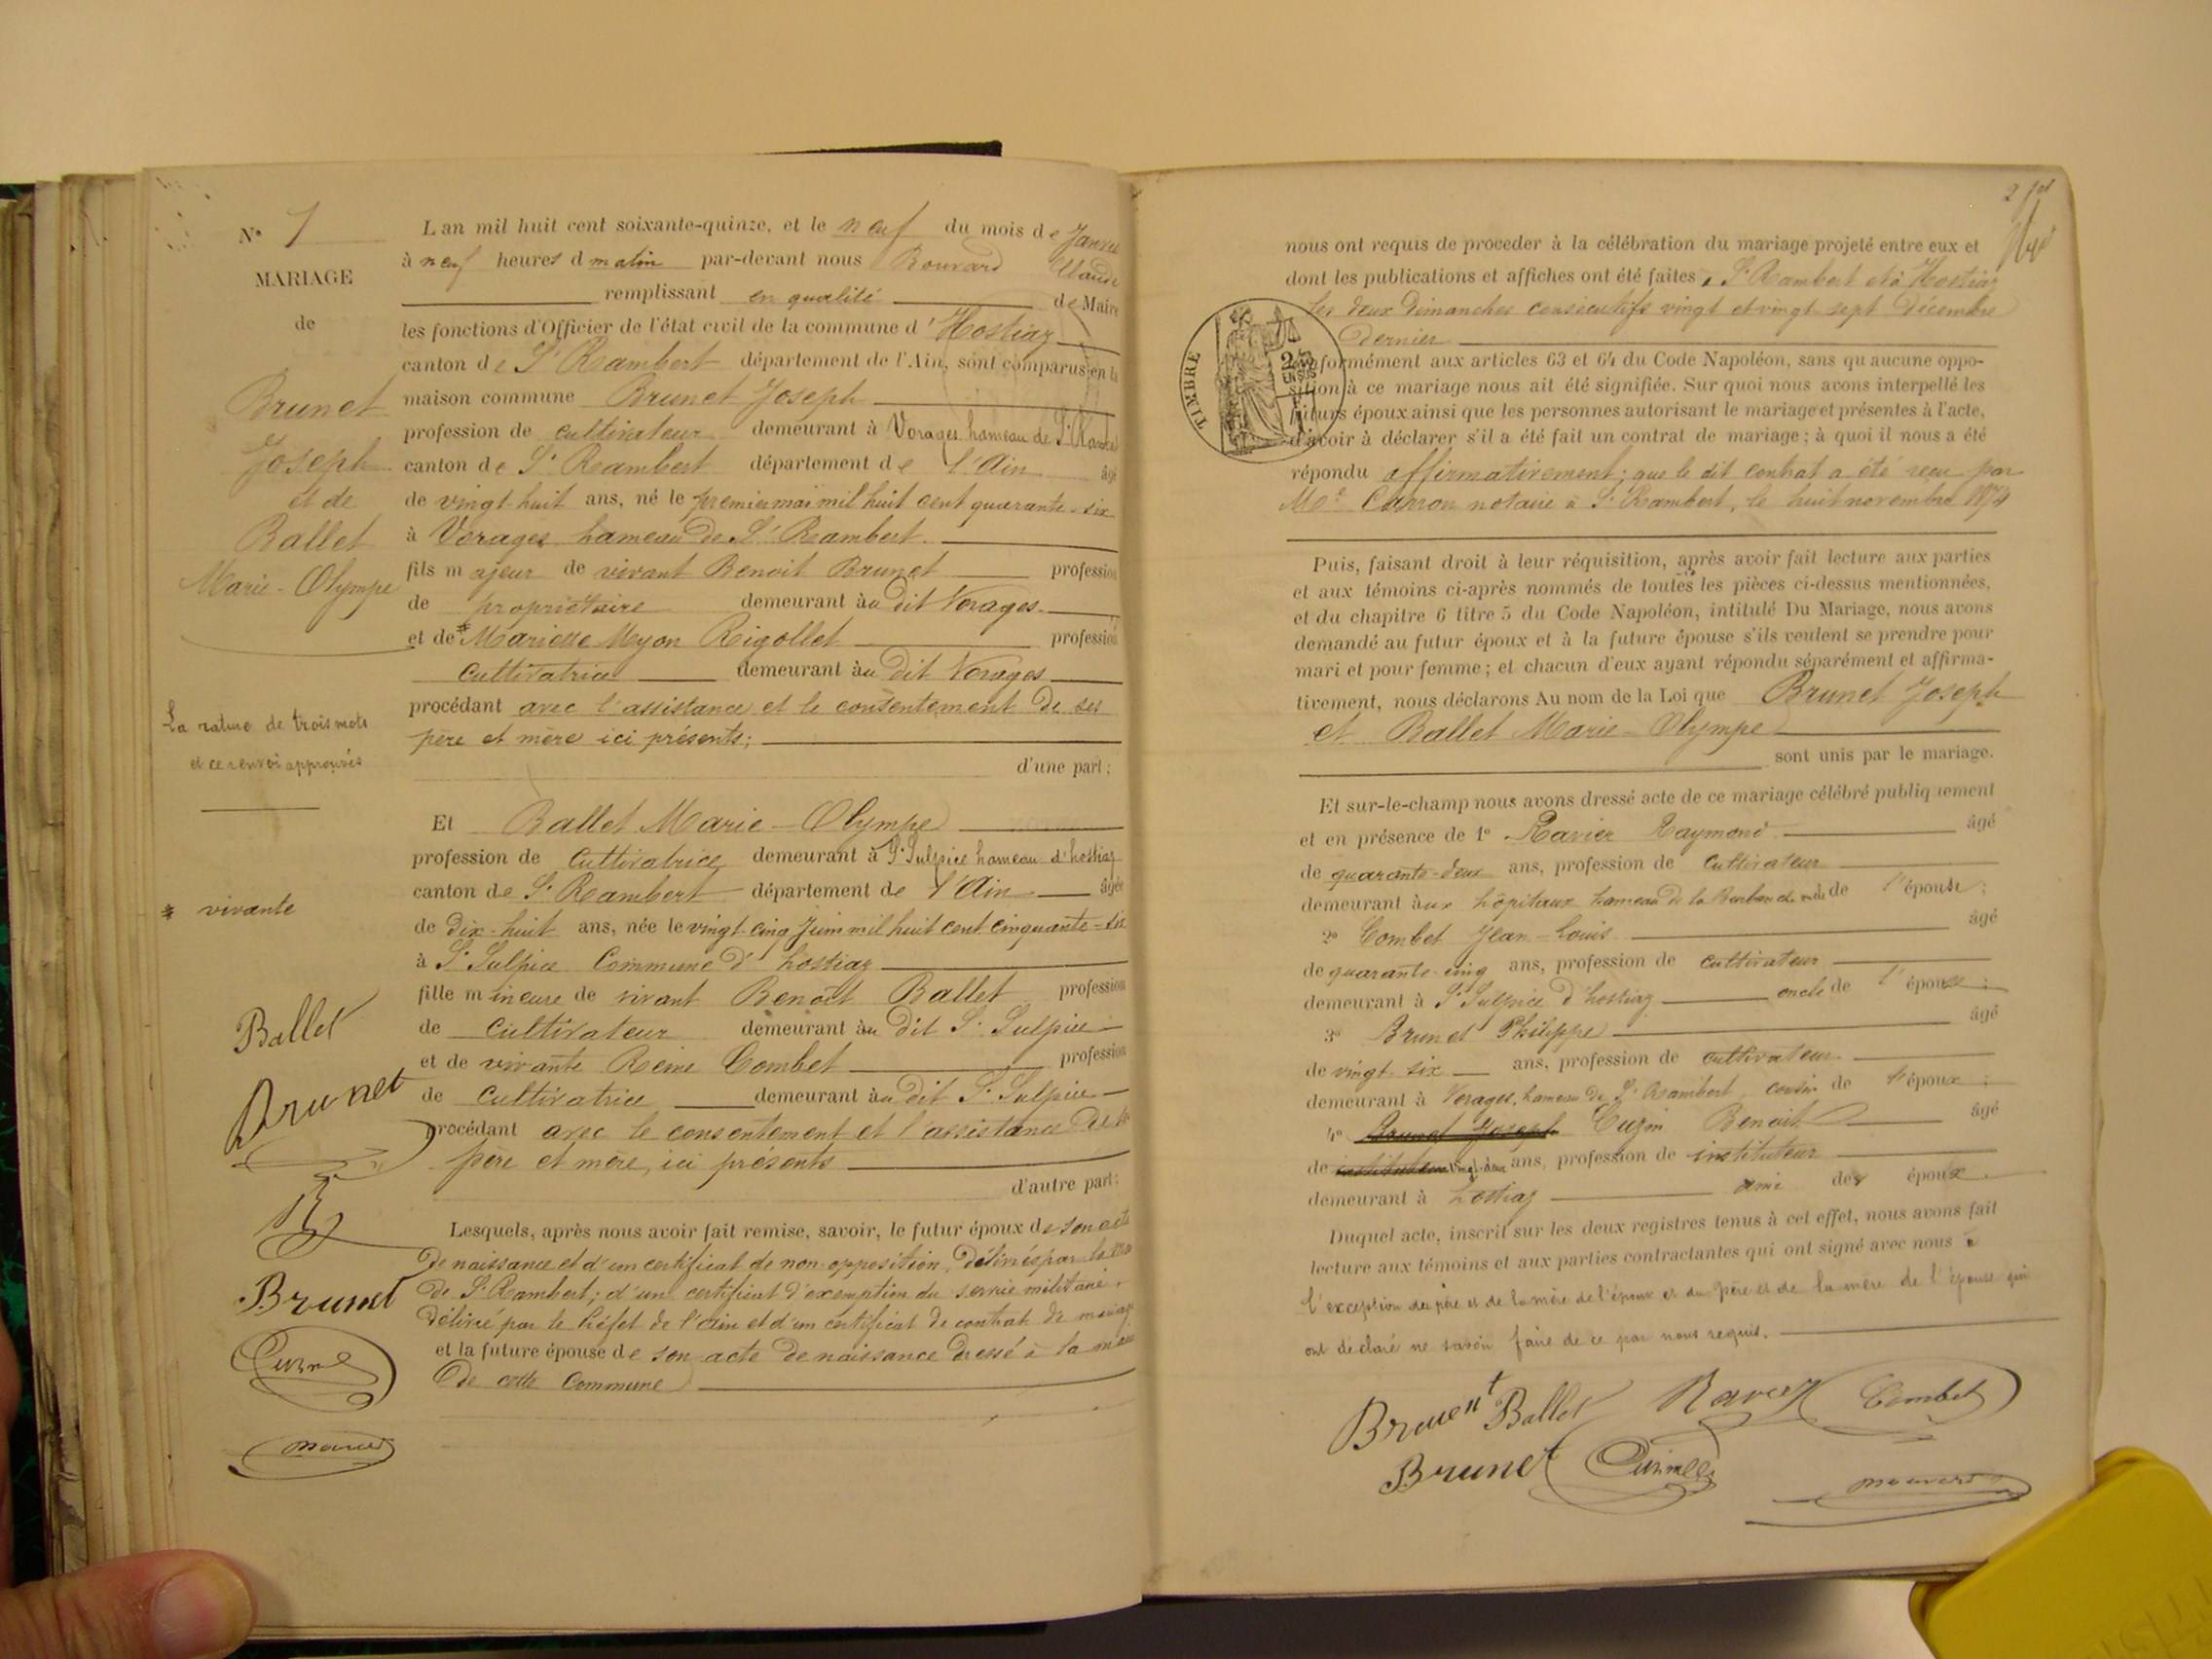 N° 1
MARIAGE
de
Brunet
Joseph
et de
Ballet
Marie-Olympe
La rature de trois mots
et ce renvoi approuvés
* vivante
Ballet
Brunet
Brunet
L an mil huit cent soixante-quinze, et le neuf du mois de Janvie
à neuf heures d matin par-devant nous Bouvard Claude
remplissant en qualité de Maire
les fonctions d'Officier de l'état civil de la commune d' Hostiaz
canton de St Rambert département de l'Ain, sont comparus en la
maison commune Brunet Joseph
profession de cultivateur demeurant à Vorages hameau de St Rambe
canton de St Rambert département de l'Ain âgé
de vingt-huit ans, né le premier mai mil huit cent quarante-six
à Vorages hameau de St Rambert.
fils majeur de vivant Benoit Brunet profession
de propriétaire demeurant àu dit Vorages.
et de * Mariette Myon Rigollet profession
cultivatrice demeurant àu dit Vorages
procédant avec l'assistance et le consentement de ses
père et mère ici présents;
d'une part;
Et Ballet Marie-Olympe
profession de cultivatrice demeurant à St Sulpice hameau d'hostiaz
canton de St Rambert département de l'Ain âgée
de Dix-huit ans, née le vingt-cinq Juin mil huit cent cinquante-six
à St Sulpice Commune d'hostiaz
fille mineure de vivant Benoît Ballet profession
de cultivateur demeurant àu dit St Sulpice
et de vivante Reine Combet profession
de cultivatrice demeurant àu dit St Sulpice
procédant avec le consentement et l'assistance de se
père et mère, ici présents
d'autre part;
Lesquels, après nous avoir fait remise, savoir, le futur époux de son acte
de naissance et d'un certificat de non-opposition, délivrés par le
de St Rambert; d'un certificat d'exemption du service militaire,
délivré par le Préfet de l'Ain et d'un certificat de contrat de mariag
et la future épouse de son acte de naissance dressé à la
de cette commune
nous ont requis de proceder à la célébration du mariage projeté entre eux et
dont les publications et affiches ont été faites à St Rambert et à Hostiaz
les deux dimanches consécutifs vingt et vingt sept Décembre
dernier
TIMBRE
formément aux articles 63 et 64 du Code Napoléon, sans qu aucune oppo-
sition à ce mariage nous ait été signifiée. Sur quoi nous avons interpellé les
futurs époux ainsi que les personnes autorisant le mariage et présentes à l'acte,
d'avoir à déclarer s'il a été fait un contrat de mariage; à quoi il nous a été
répondu affirmativement; que le dit contrat a été reçu par
Me Carron notaire à St Rambert, le huit novembre 1874
Puis, faisant droit à leur réquisition, après avoir fait lecture aux parties
et aux témoins ci-après nommés de toutes les pièces ci-dessus mentionnées,
et du chapitre 6 titre 5 du Code Napoléon, intitulé Du Mariage, nous avons
demandé au futur époux et à la future épouse s'ils veulent se prendre pour
mari et pour femme; et chacun d'eux ayant répondu séparément et affirma-
tivement, nous déclarons Au nom de la Loi que Brunet Joseph
et Ballet Marie-Olympe
sont unis par le mariage.
Et sur-le-champ nous avons dressé acte de ce mariage célébré publiquement
et en présence de 1° Ravier Raymond âgé
de quarante-deux ans, profession de cultivateur
demeurant àux hôpitaux hameau de la de l'épouse;
2° Combet Jean-Louis âgé
de quarante-cinq ans, profession de cultivateur
demeurant à St Sulpice d'hostiaz oncle de l'épouse;
3° Brunet Philippe âgé
de vingt six ans, profession de cultivateur
demeurant à Vorages, hameau de St Rambert, cousin de l'époux;
4° Brunet Joseph Cuzin Benoit âgé
de instituteur vingt-deux ans, profession de instituteur
demeurant à hostiaz ami des époux.
Duquel acte, inscrit sur les deux registres tenus à cet effet, nous avons fait
lecture aux témoins et aux parties contractantes qui ont signé avec nous à
l'exception du père et de la mère de l'époux et du père et de la mère de l'épouse qui
ont déclaré ne savoir faire de ce par nous requis.
Brunet Ballet Ravier Combet
Brunet